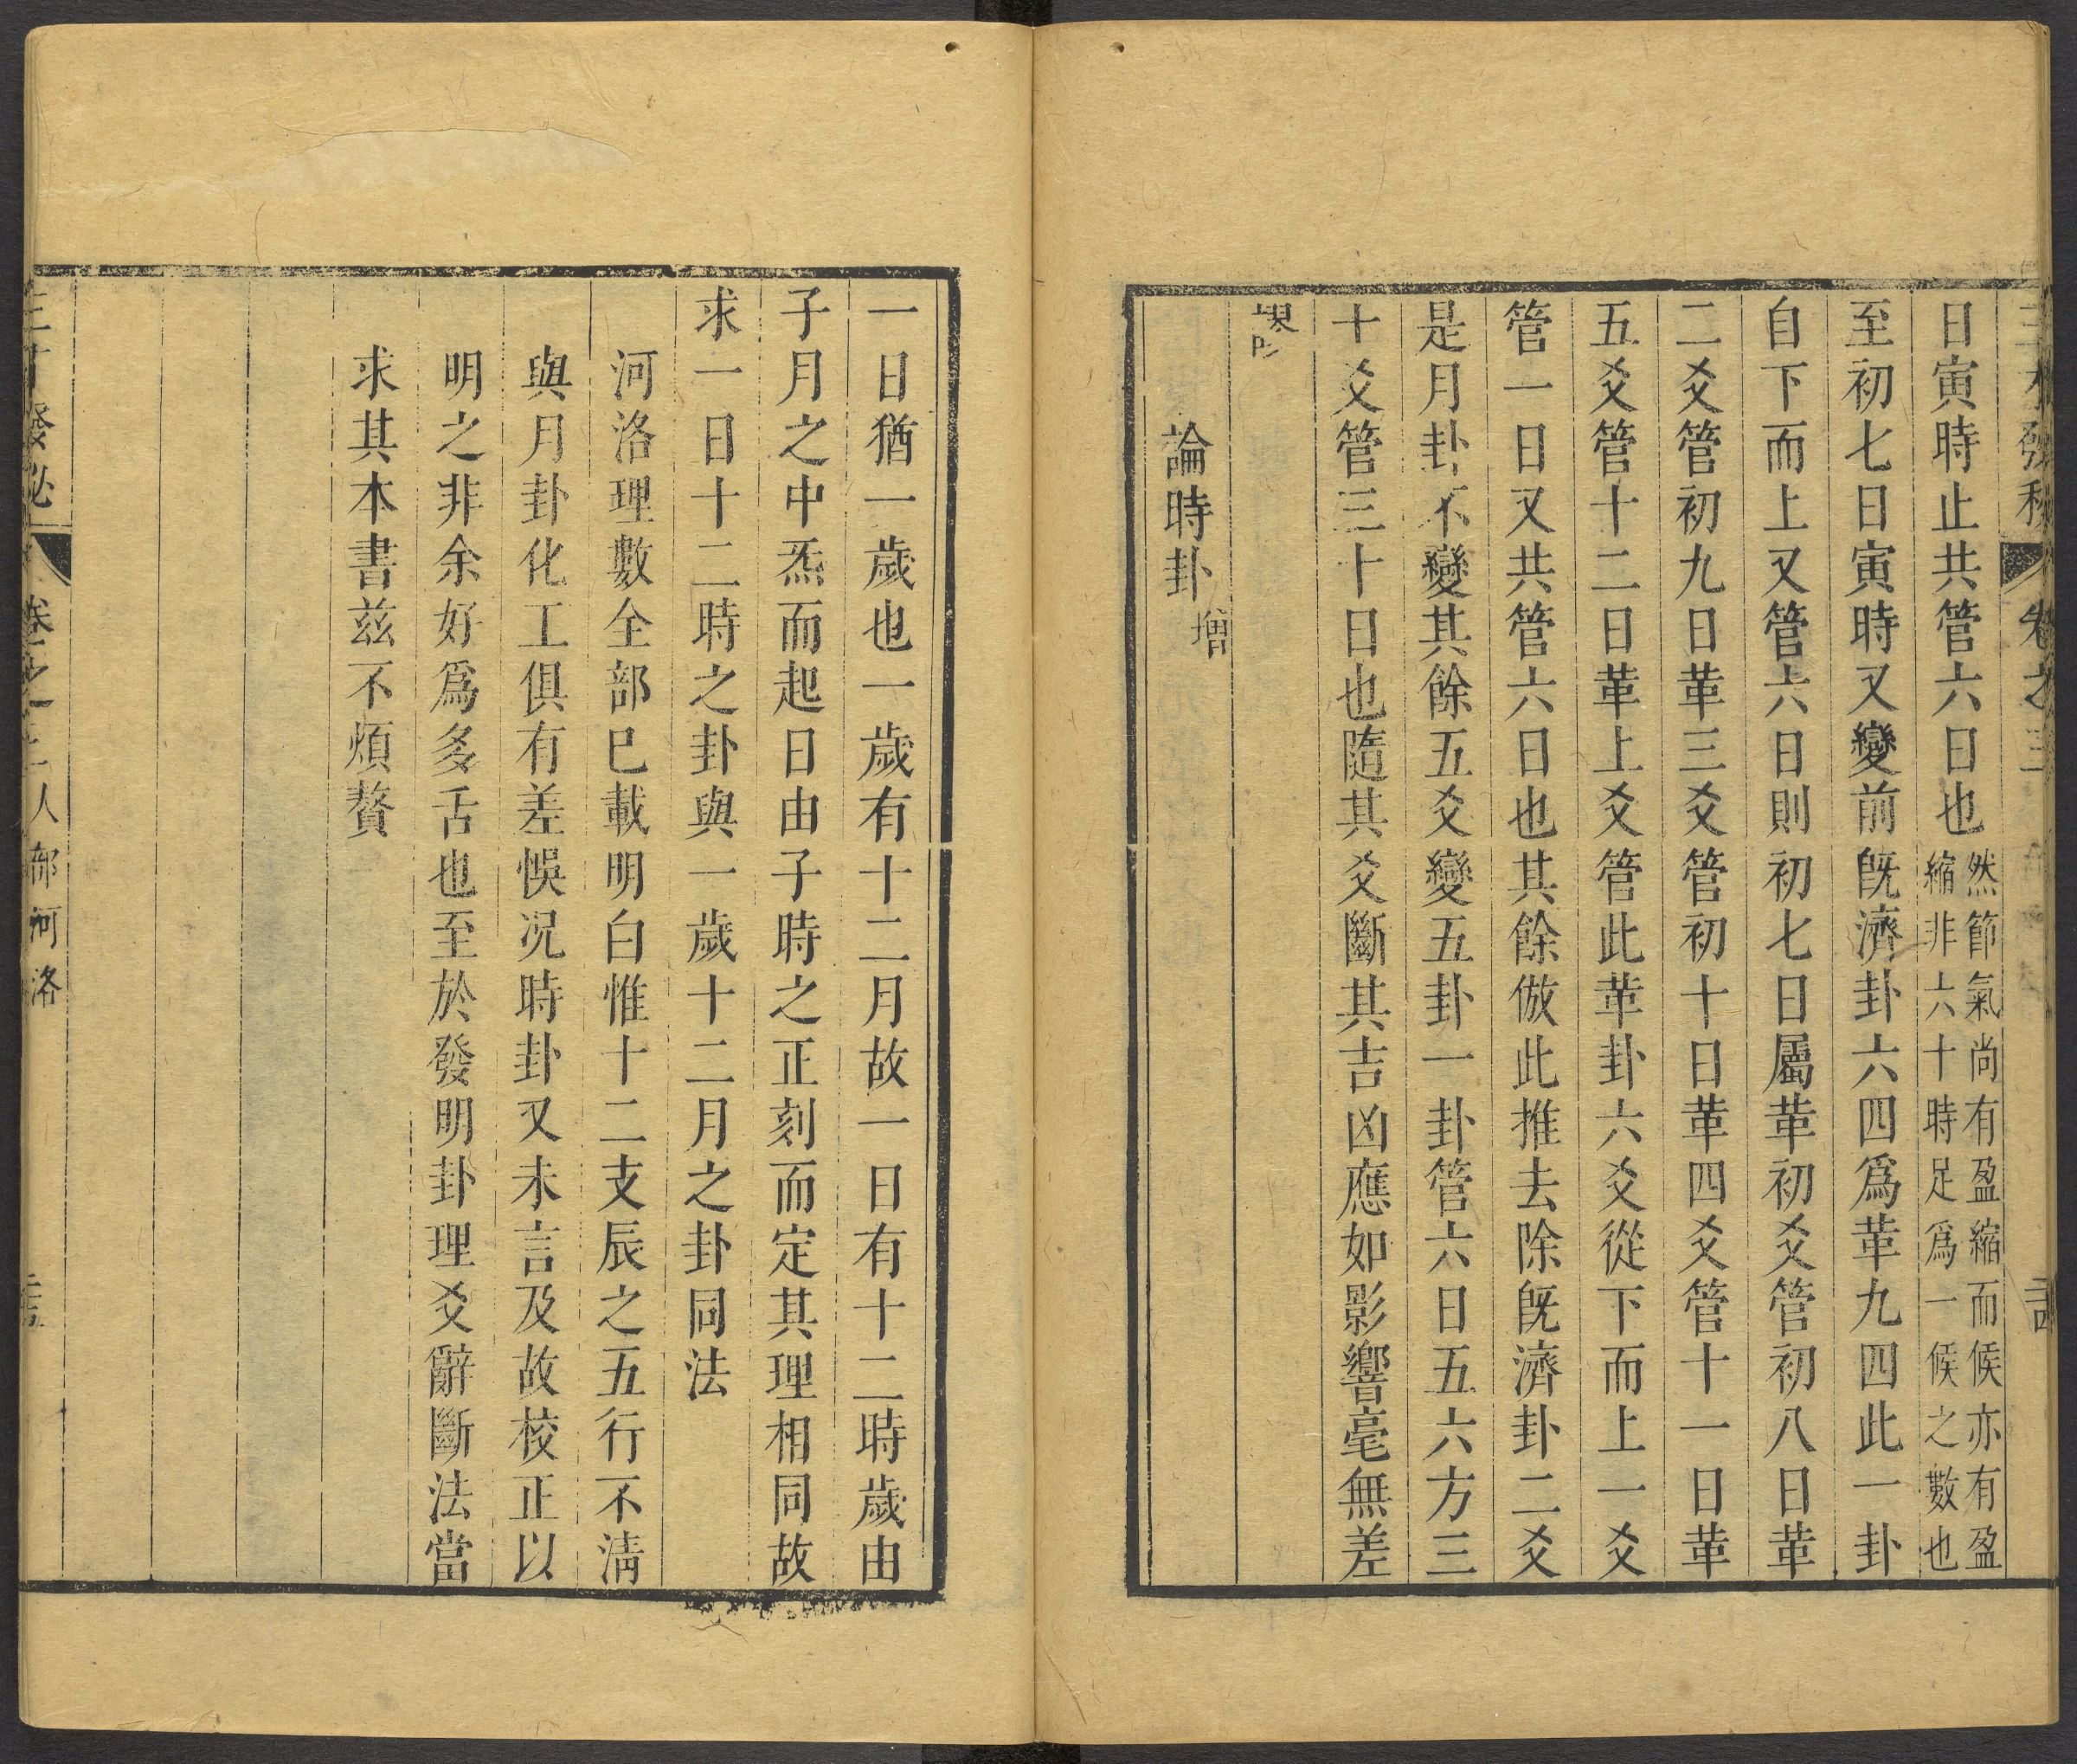 日寅時止共管六日也然節氣尚有盈縮而候亦有盈
縮非六十時足爲一候之數也
至初七日寅時又變前旣濟卦六四爲革九四此一卦
自下而上又管六日則初七日屬革初爻管初八日革
二爻管初九日革三爻管初十日革四爻管十一日革
五爻管十二日革上爻管此革卦六爻從下而上一爻
管一日又共管六日也其餘倣此推去除旣濟卦二爻
是月卦不變其餘五爻變五卦一卦管六日五六方三
十爻管三十日也隨其爻斷其吉凶應如影響毫無差
論時卦 增
一日猶一歲也一歲有十二月故一日有十二時歲由
子月之中炁而起日由子時之正刻而定其理相同故
求一日十二時之卦與一歲十二月之卦同法
河洛理數全部巳載明白惟十二支辰之五行不淸
與月卦化工俱有差悞况時卦又未言及故校正以
明之非余好爲多舌也至於發明卦理爻辭斷法當
求其本書兹不煩贅
發必 卷之 人部河洛